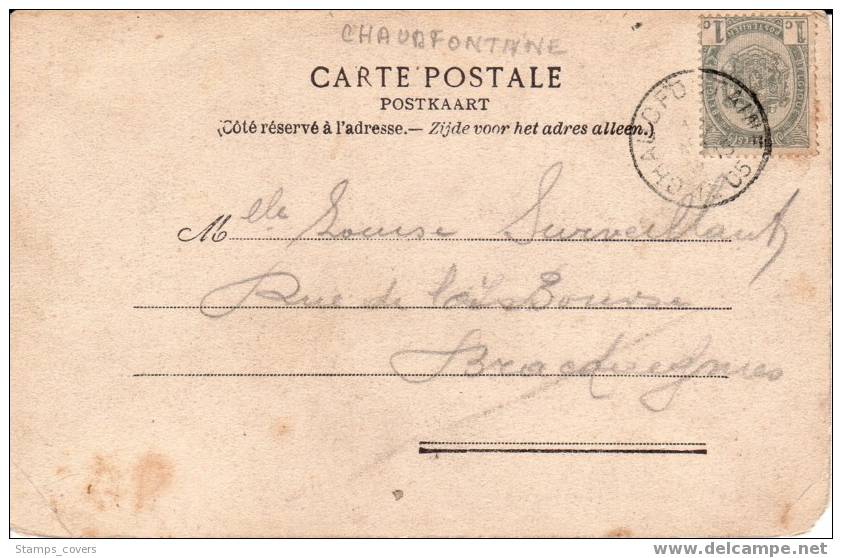 CHAUDFONTAINE
1 c 1 c
CARTE POSTALE
POSTKAART
(Côté réservé à l'adresse.— Zijde voor het adres alleen.)
CHAUDFONTAINE
05
Mlle Louise Surveillant
Rue de
Bracquegnies
Stamps_covers
www.delcampe.net